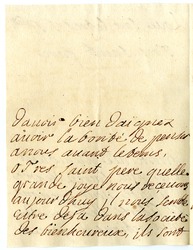 davoir bien daigner
avoir la bonté de penser
a nous avant le tems,
o Tres saint pere quelle
grande joye nous recevons
aujourdhuy il nous semble
estre desja dans la
des bienheureux, ils sont